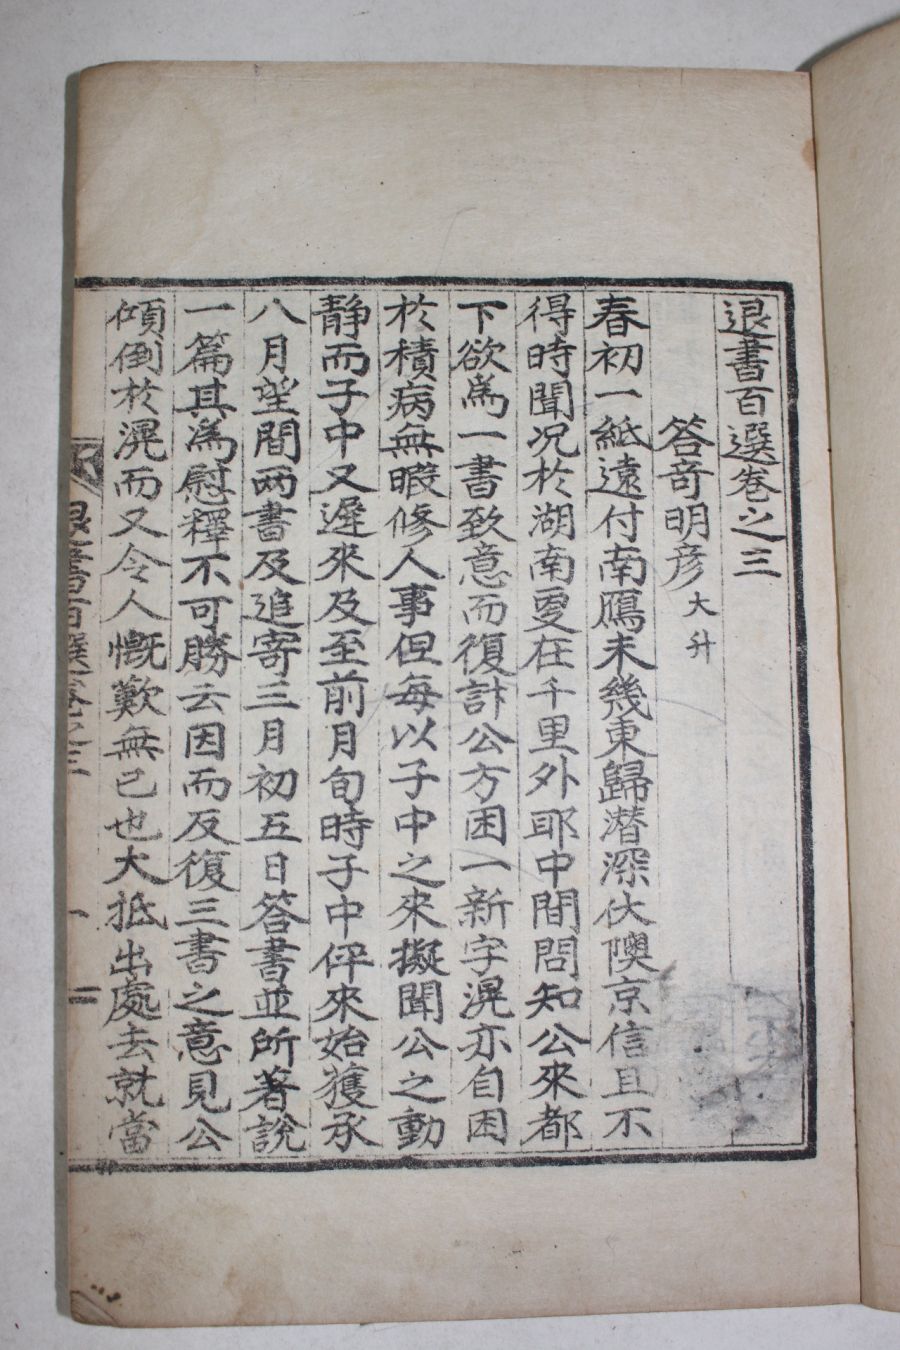 退書百選卷之三
答竒明彦 大升
春初一紙遠付南鴈未幾東歸潜深伏隩京信且不
得時聞况於湖南敻在千里外耶中間問知公來都
下欲爲一書致意而復計公方困一新字滉亦自困
於積病無暇修人事但每以子中之來擬聞公之動
靜而子中又遲來及至前月旬時子中伻來始獲承
八月望間两書及追寄三月初五日答書並所著說
一篇其爲慰釋不可勝云因而反復三書之意見公
傾倒於滉而又令人慨歎無已也大抵出處去就當
退書百選卷之三 一